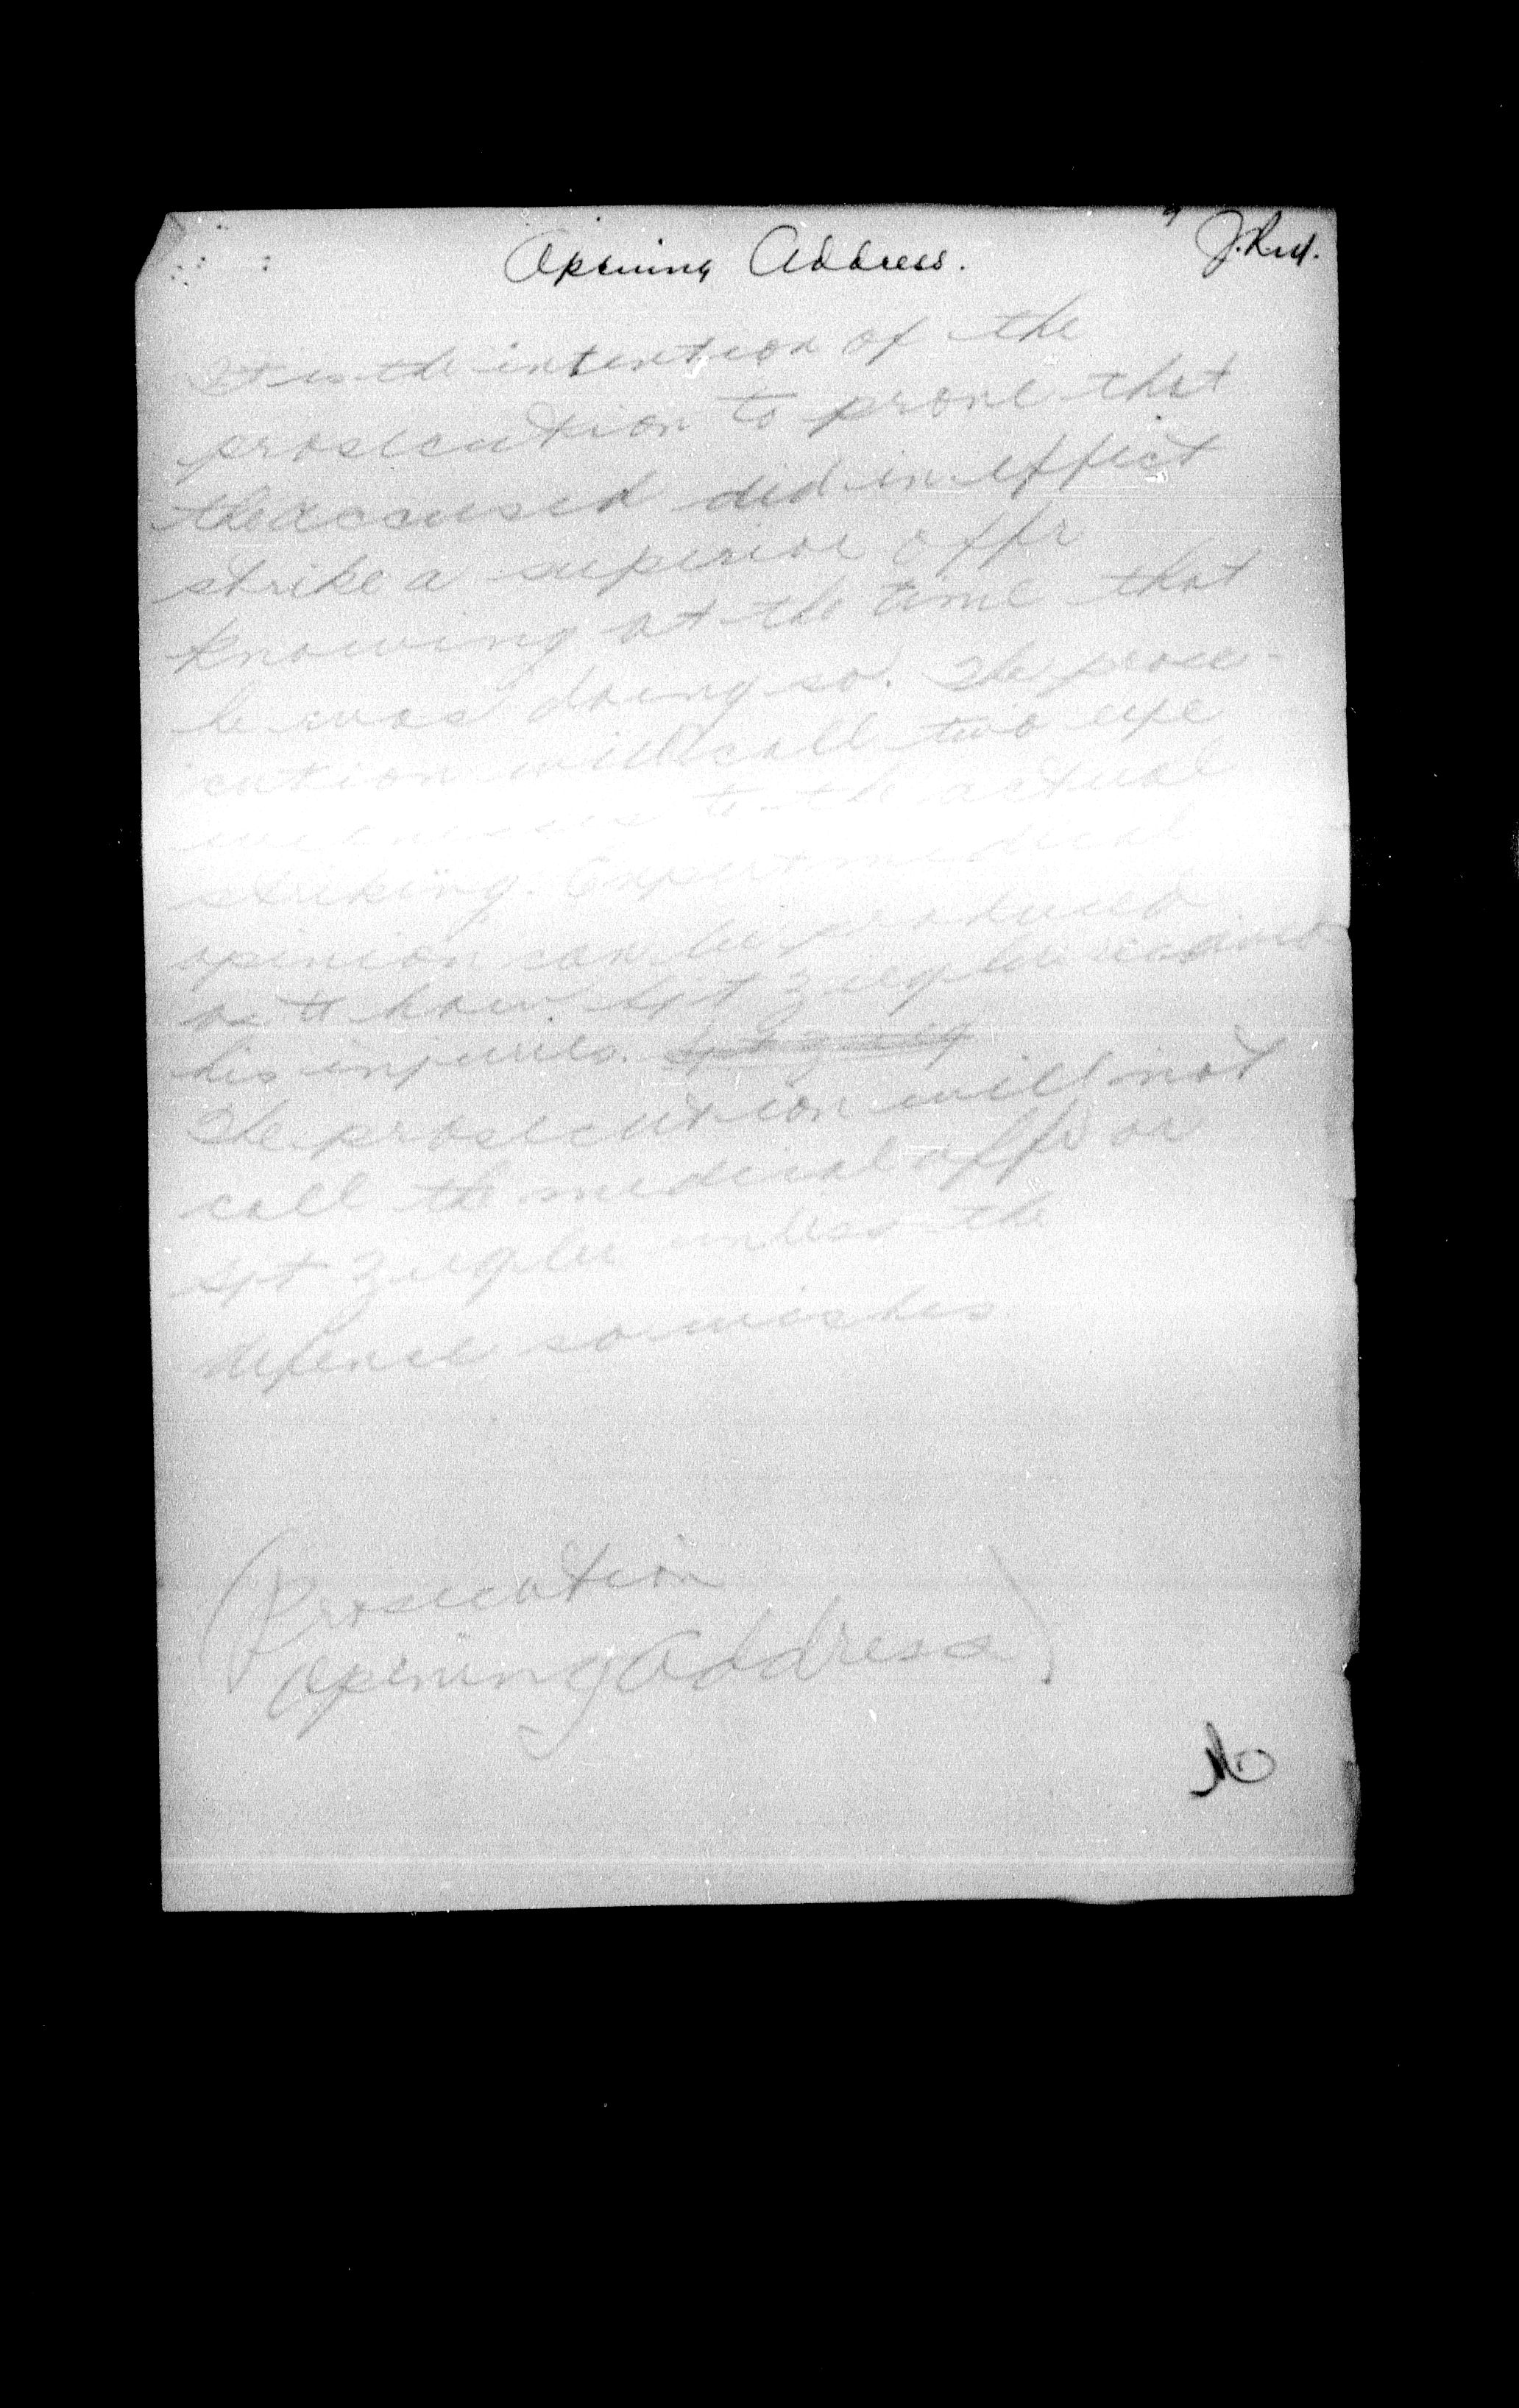 Opening Address.
It is the intention of the
prosecution to prove that
the accused did in effect
strike a superior offr
knowing at the time that
he was doing so. The prose-
cution will call two eye
witnesses to the actual
striking. Expert medical
opinion can be produced
as to how Sjt Ziegler received
his injuries.
The prosecution will not
call the medical offr or
Sjt Ziegler unless the
defence so wishes.
(Prosecution
Opening Address)